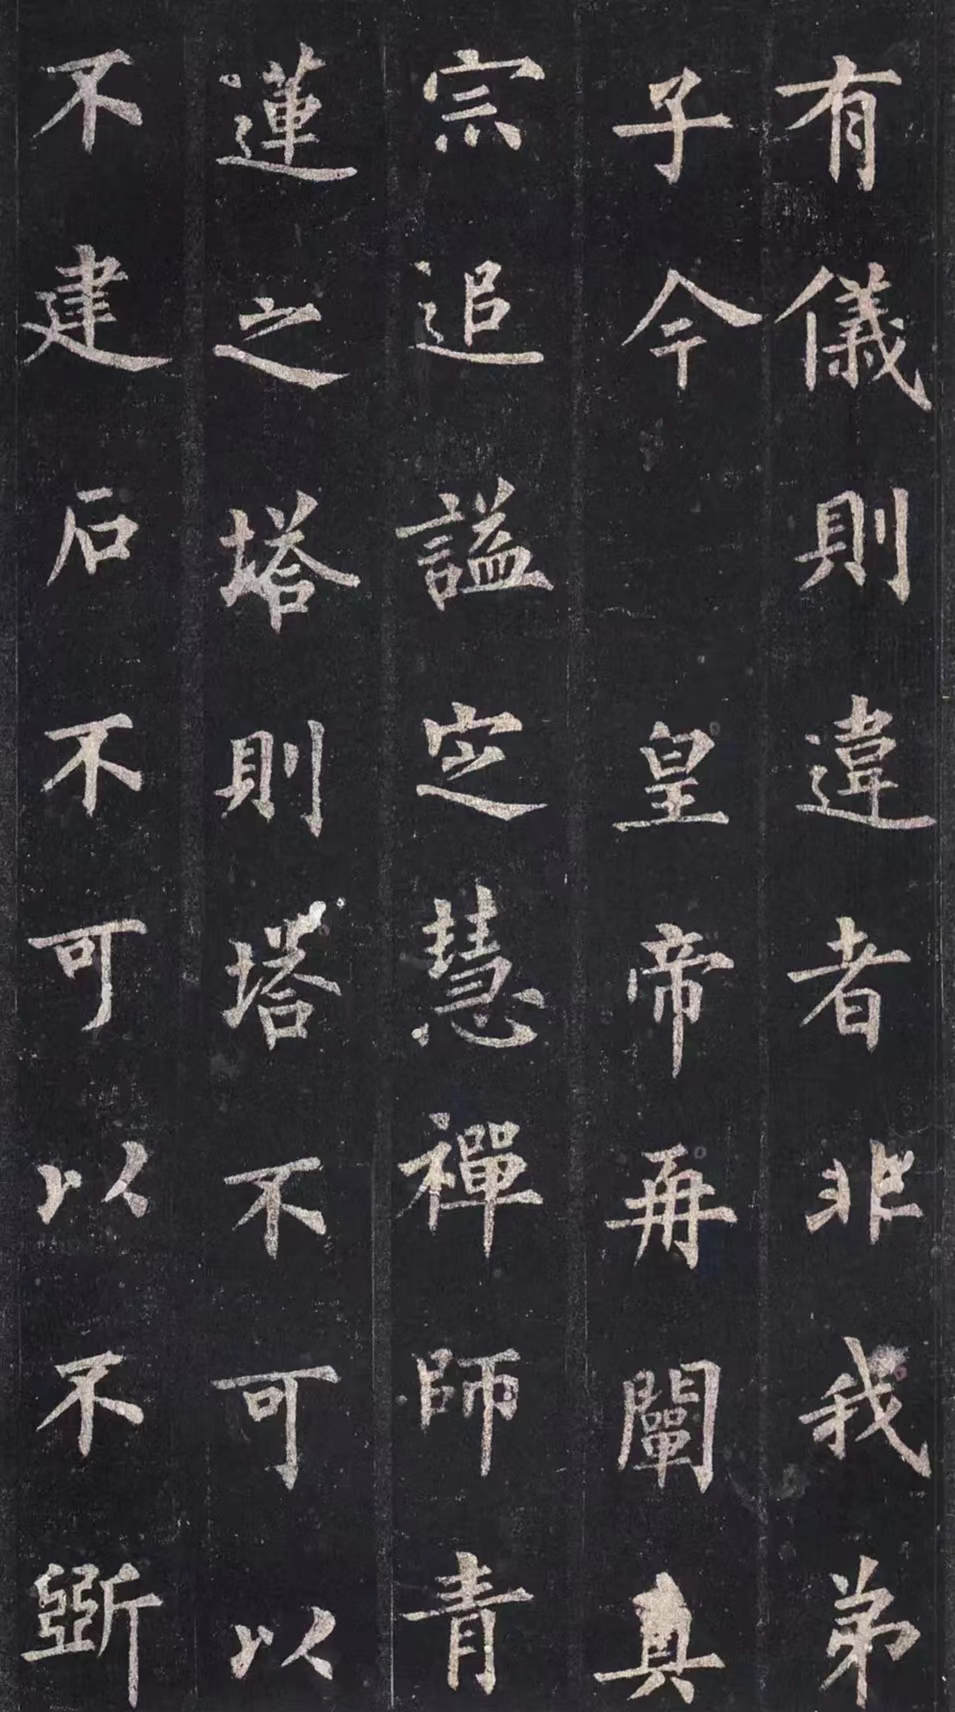 有儀則違者非我弟
子今皇帝再闡真
宗追謚定慧禪師青
蓮之塔則塔不可以
不建石不可以不斲